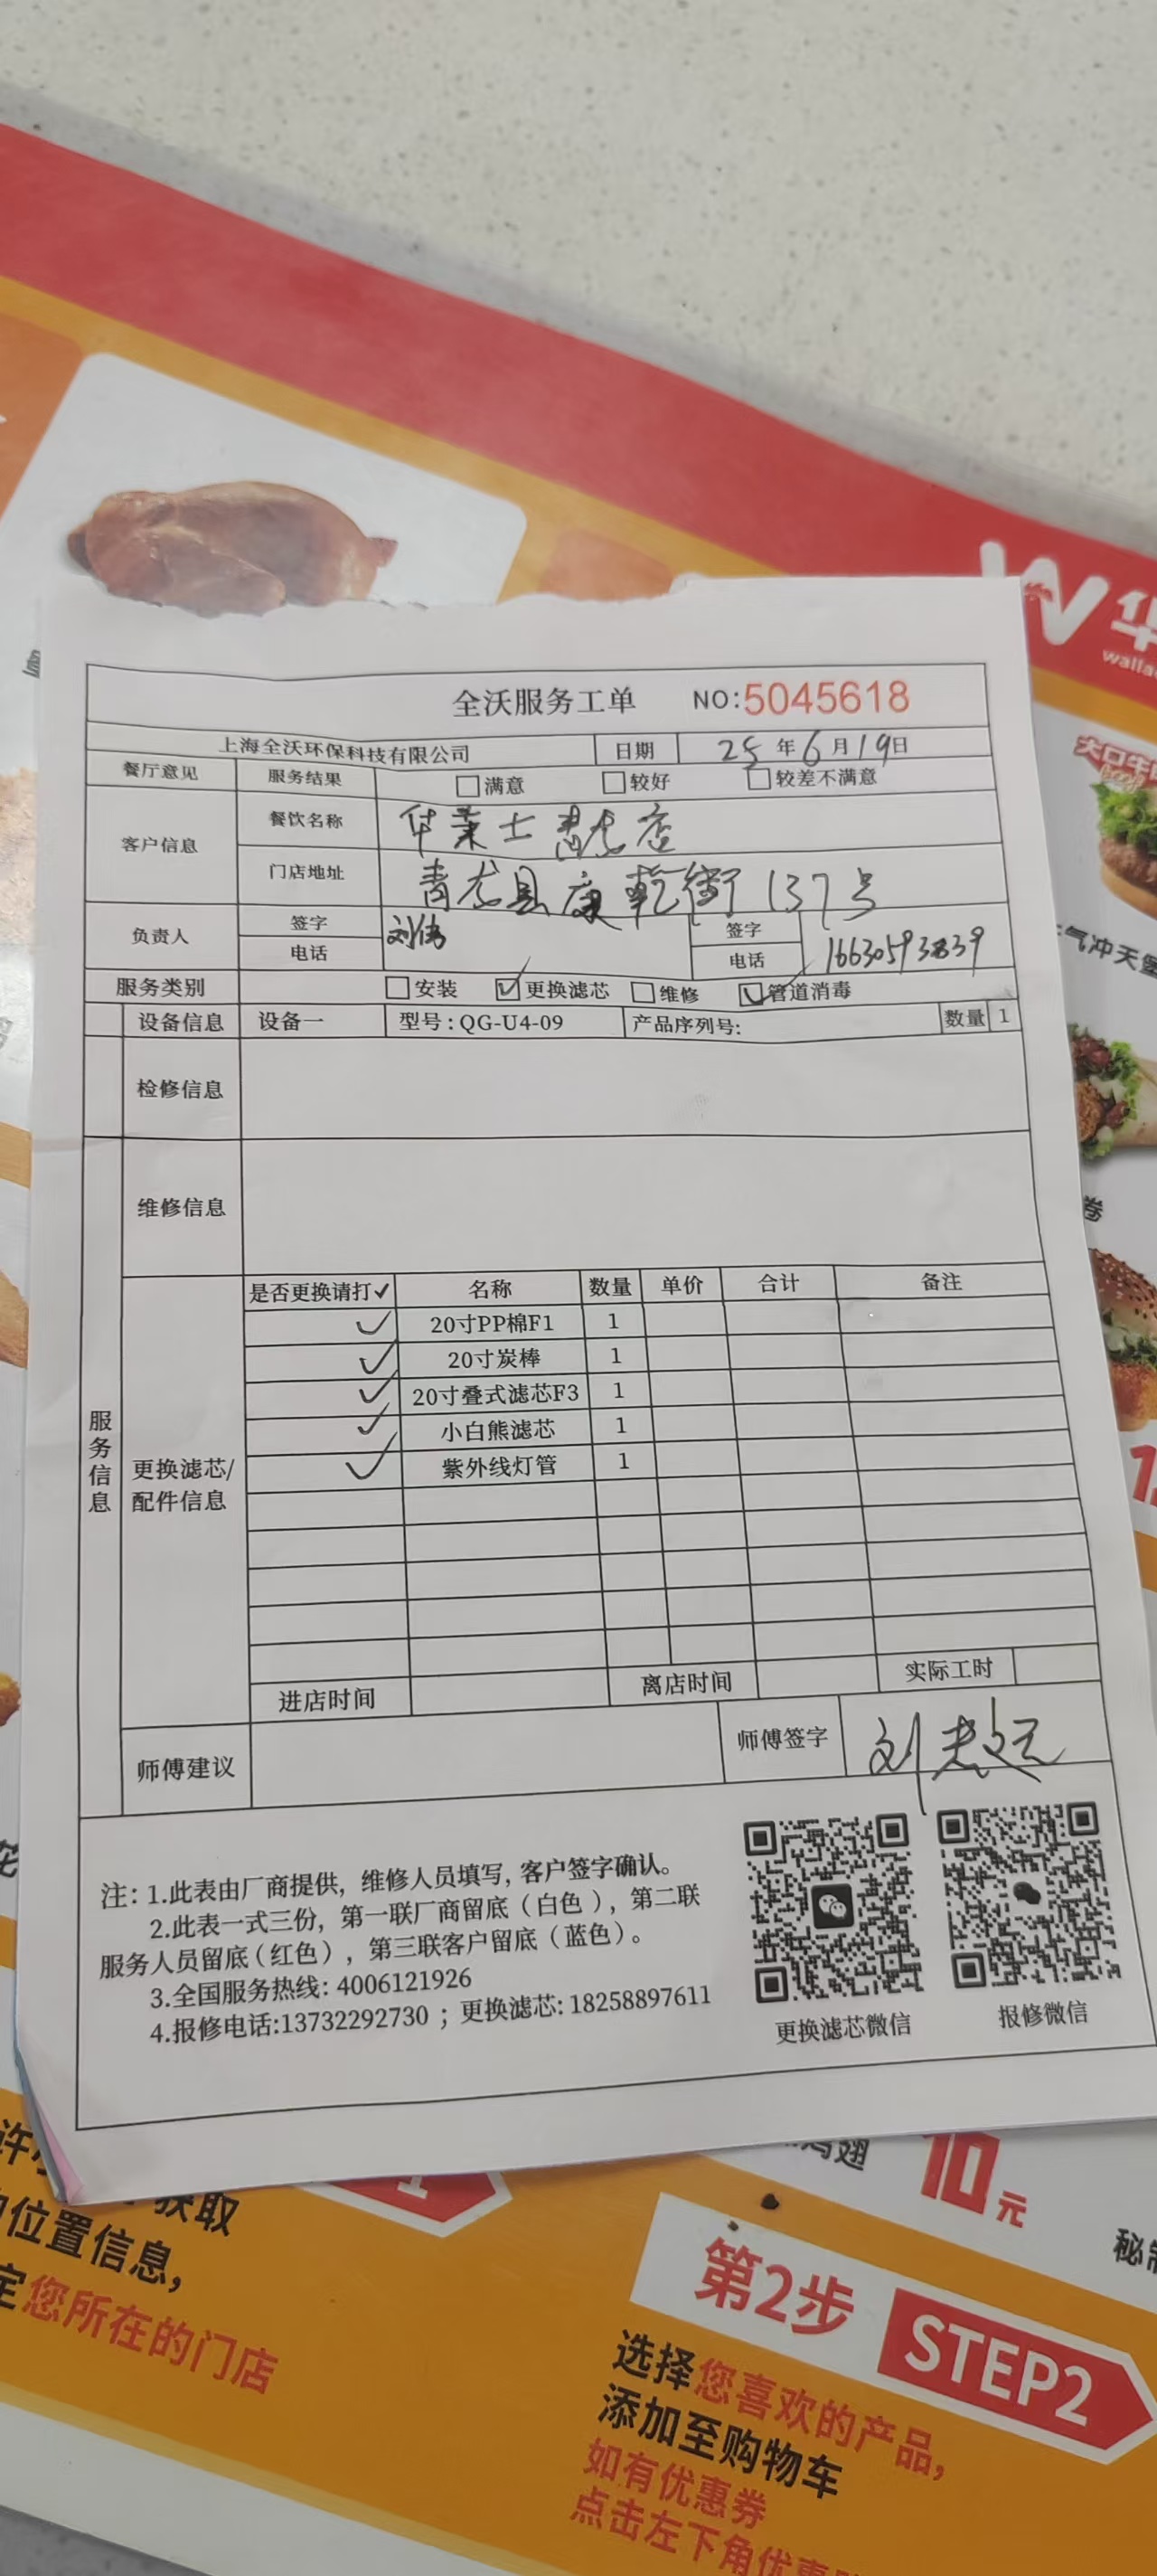 W 华
walla
大口牛
全沃服务工单 NO:5045618
上海全沃环保科技有限公司 日期 25年6月19日
餐厅意见 服务结果 □满意 □较好 □较差不满意
客户信息 餐饮名称 华莱士青龙店
门店地址 青龙县康乾街137号
负责人 签字 刘伟 签字
电话 电话 16630593839
服务类别 □安装 ☑更换滤芯 □维修 ☑管道消毒
气冲天堡
设备信息 设备一 型号:QG-U4-09 产品序列号: 数量 1
检修信息
维修信息
卷
服务信息
更换滤芯/
配件信息
是否更换请打✓ 名称 数量 单价 合计 备注
✓ 20寸PP棉F1 1
✓ 20寸炭棒 1
✓ 20寸叠式滤芯F3 1
✓ 小白熊滤芯 1
✓ 紫外线灯管 1
进店时间 离店时间 实际工时
师傅建议 师傅签字 刘志远
注: 1.此表由厂商提供, 维修人员填写, 客户签字确认。
2.此表一式三份, 第一联厂商留底(白色), 第二联
服务人员留底(红色), 第三联客户留底(蓝色)。
3.全国服务热线: 4006121926
4.报修电话:13732292730 ; 更换滤芯: 18258897611
更换滤芯微信 报修微信
获取
位置信息,
定您所在的门店
1
鸡翅
10元
秘制
第2步 STEP2
选择您喜欢的产品,
添加至购物车
如有优惠券
点击左下角优惠